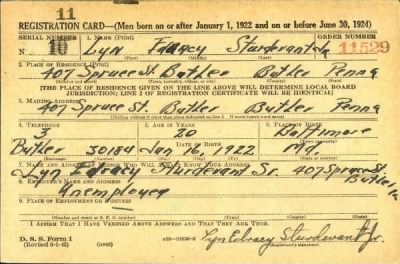 11
REGISTRATION CARD—(Men born on or after January 1, 1922 and on or before June 30, 1924)
SERIAL NUMBER 1. NAME (Print) ORDER NUMBER
10 Lyn Edracy Sturdevant Jr. 11529
(First) (Middle) (Last)
2. PLACE OF RESIDENCE (Print)
407 Spruce St. Butler Butler Penna
[THE PLACE OF RESIDENCE GIVEN ON THE LINE ABOVE WILL DETERMINE LOCAL BOARD
JURISDICTION; LINE 2 OF REGISTRATION CERTIFICATE WILL BE IDENTICAL]
3. MAILING ADDRESS
407 Spruce St. Butler Butler Penna
4. TELEPHONE 5. AGE IN YEARS 6. PLACE OF BIRTH
3 20 Baltimore
DATE OF BIRTH
Butler 30184 Jan 16, 1922 Md.
(Exchange) (Number) (Mo.) (Day) (Yr.) (State or country)
7. NAME AND ADDRESS OF PERSON WHO WILL ALWAYS KNOW YOUR ADDRESS
Lyn Edracy Sturdevant Sr. 407 Spruce St
Butler Pa
8. EMPLOYER'S NAME AND ADDRESS
Unemployed
9. PLACE OF EMPLOYMENT OR BUSINESS
I AFFIRM THAT I HAVE VERIFIED ABOVE ANSWERS AND THAT THEY ARE TRUE.
D. S. S. Form 1
(over)
Lyn Edracy Sturdevant Jr.